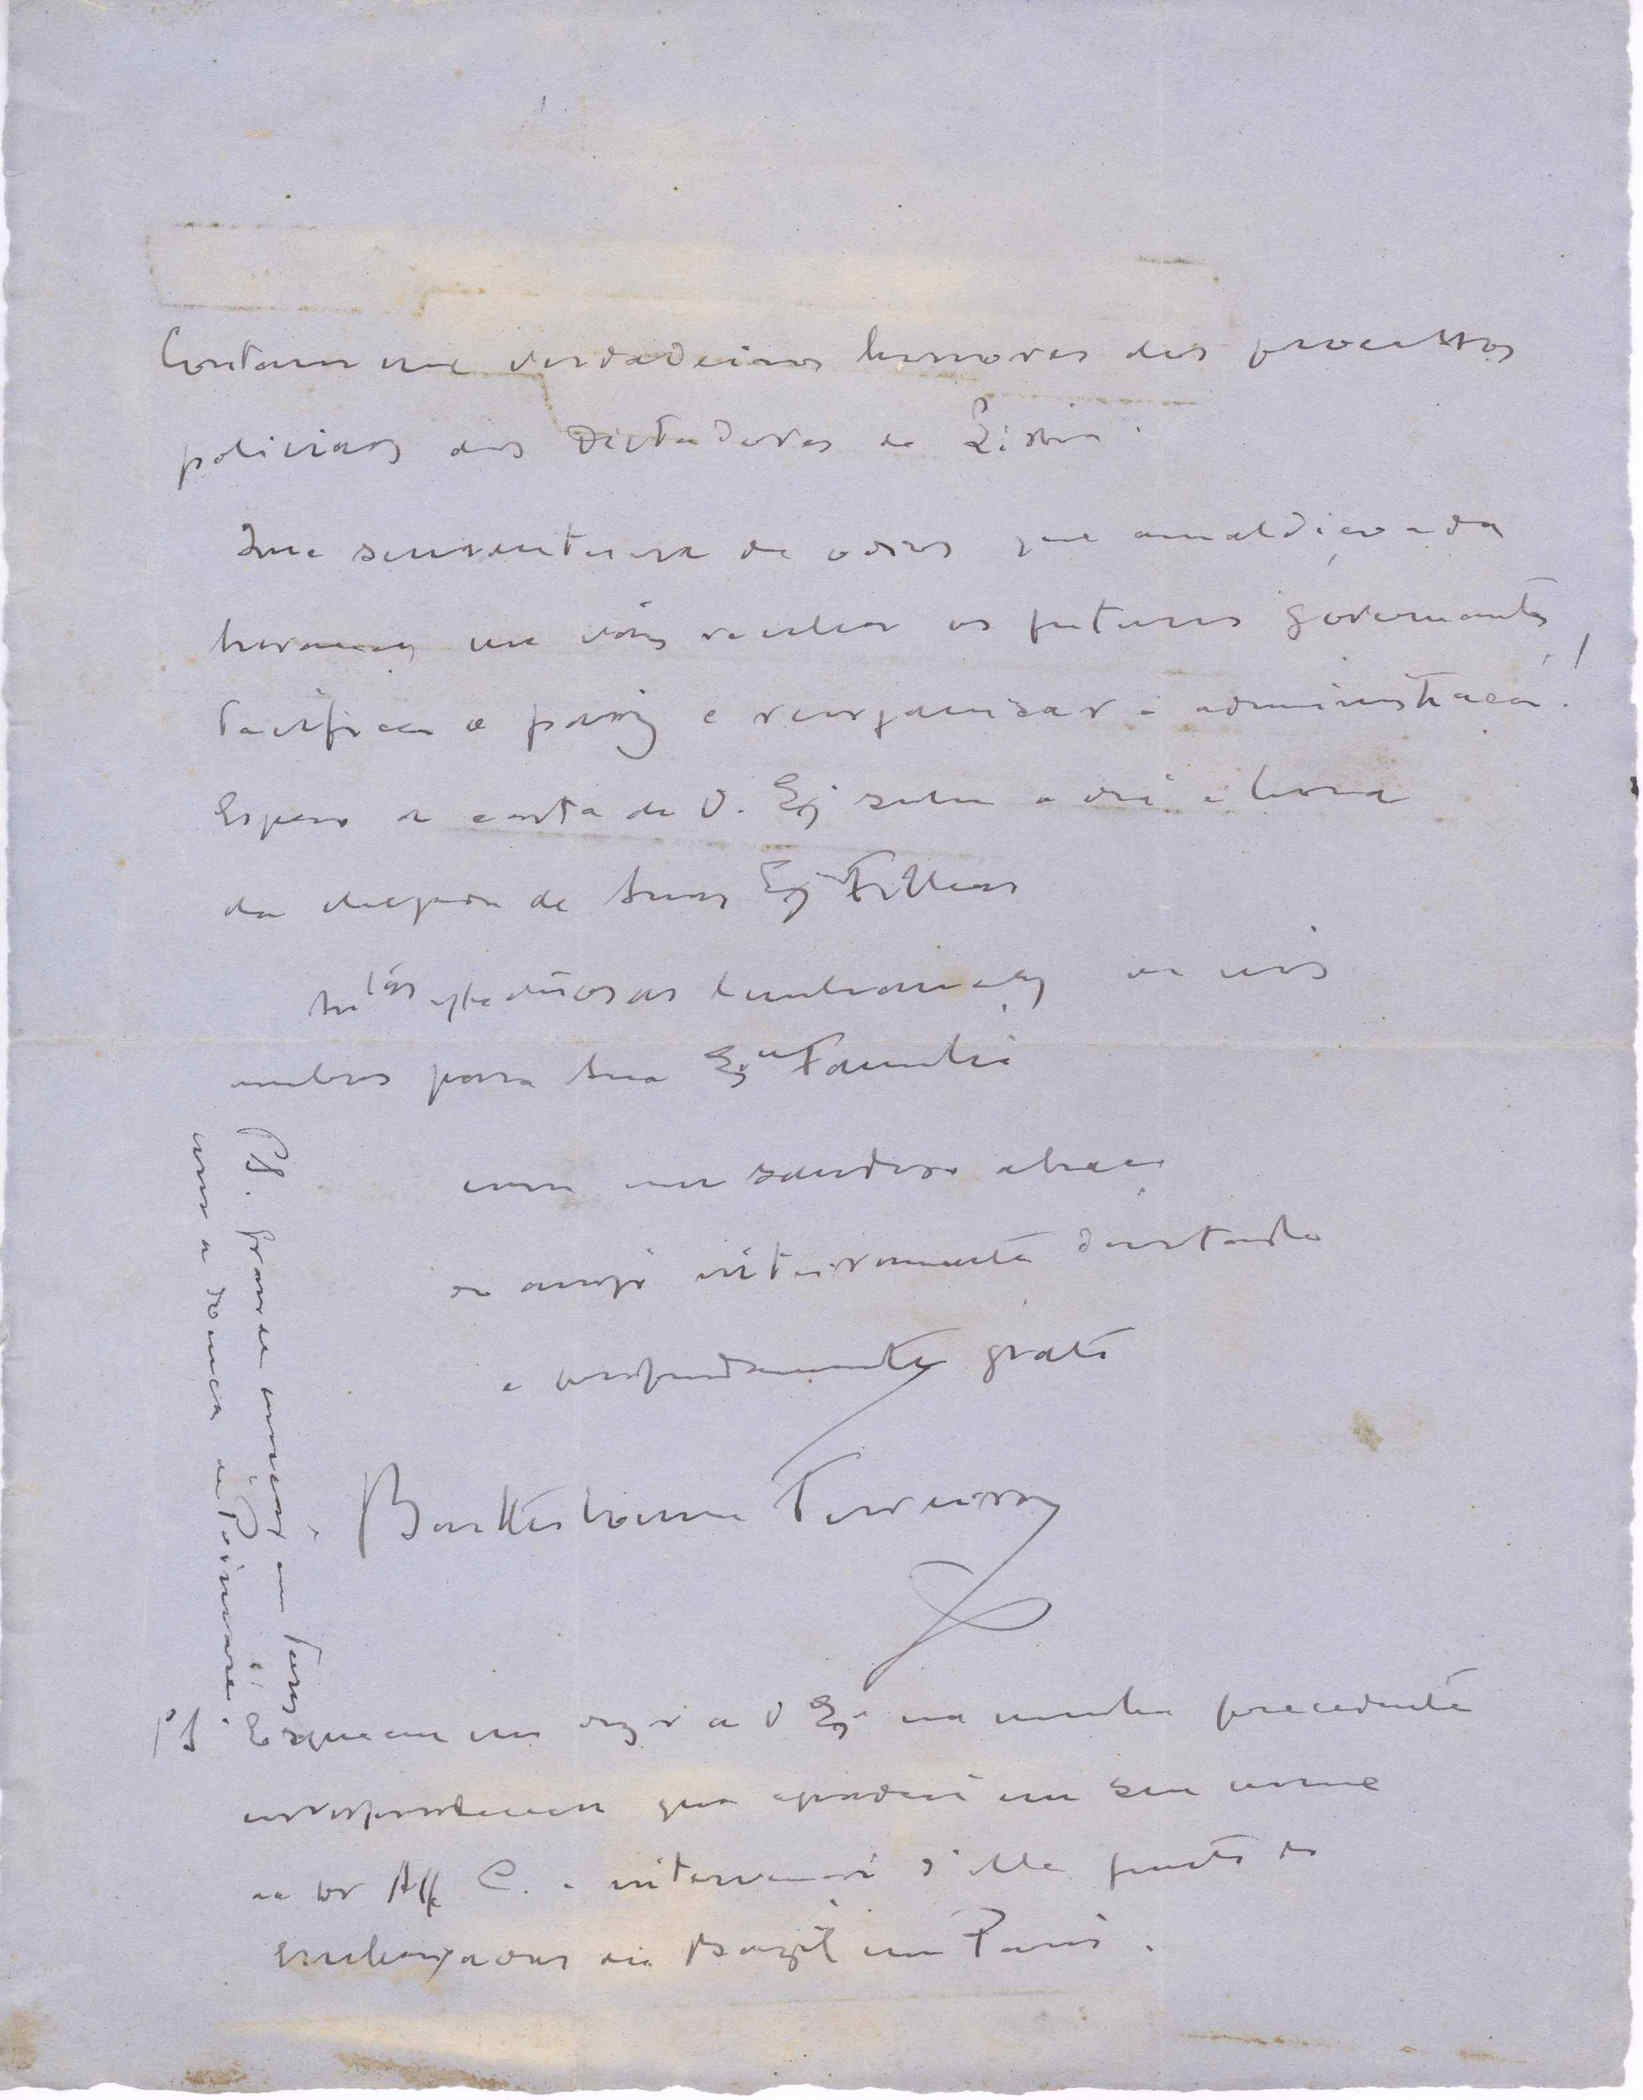 Contam me verdadeiros horrores dos processos
policiaes dos Dictadores de Lisboa.
Que sementeira de odios que amaldiçoada
herança vão receber os futuros governantes
Pacificar o paiz e reorganisar a administração!
Espero a carta de V. Exª sobre o dia e hora
da chegada de suas Exᵐᵃˢ Filhas
Mtas affectuosas lembranças de nós
ambos para sua Exᵐᵃ Familia
com um saudoso abraço
do amigo inteiramente dedicado
e profundamente grato
Bartholomeu Ferreira
PS Esqueceu me dizer a V Exª na minha precedente
correspondencia que agradeci em seu nome
ao Dr Aff C. a intervenção d'elle junto do
Embaixador do Brazil em Paris.
PS. Grande emoção em Paris
com a doença de Poincaré.